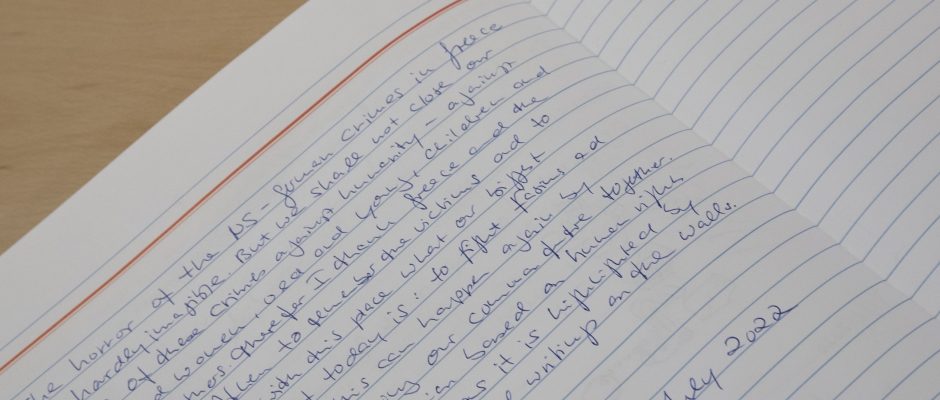 horror of the NS-German crimes in Greece
hardly imagible. But we shall not close our
of these crimes against humanity - against
women, old and young, children and
Therefor I thank Greece and the
to remember the victims ad to
with this place what our bigest
today is: to fight fasims ad
this can happen again by
our common future together.
based on human rights
as it is highlighted by
writing on the walls.
July 2022